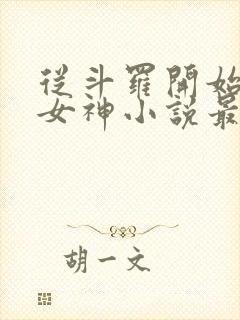 從斗羅開始
女神小說最
胡一文